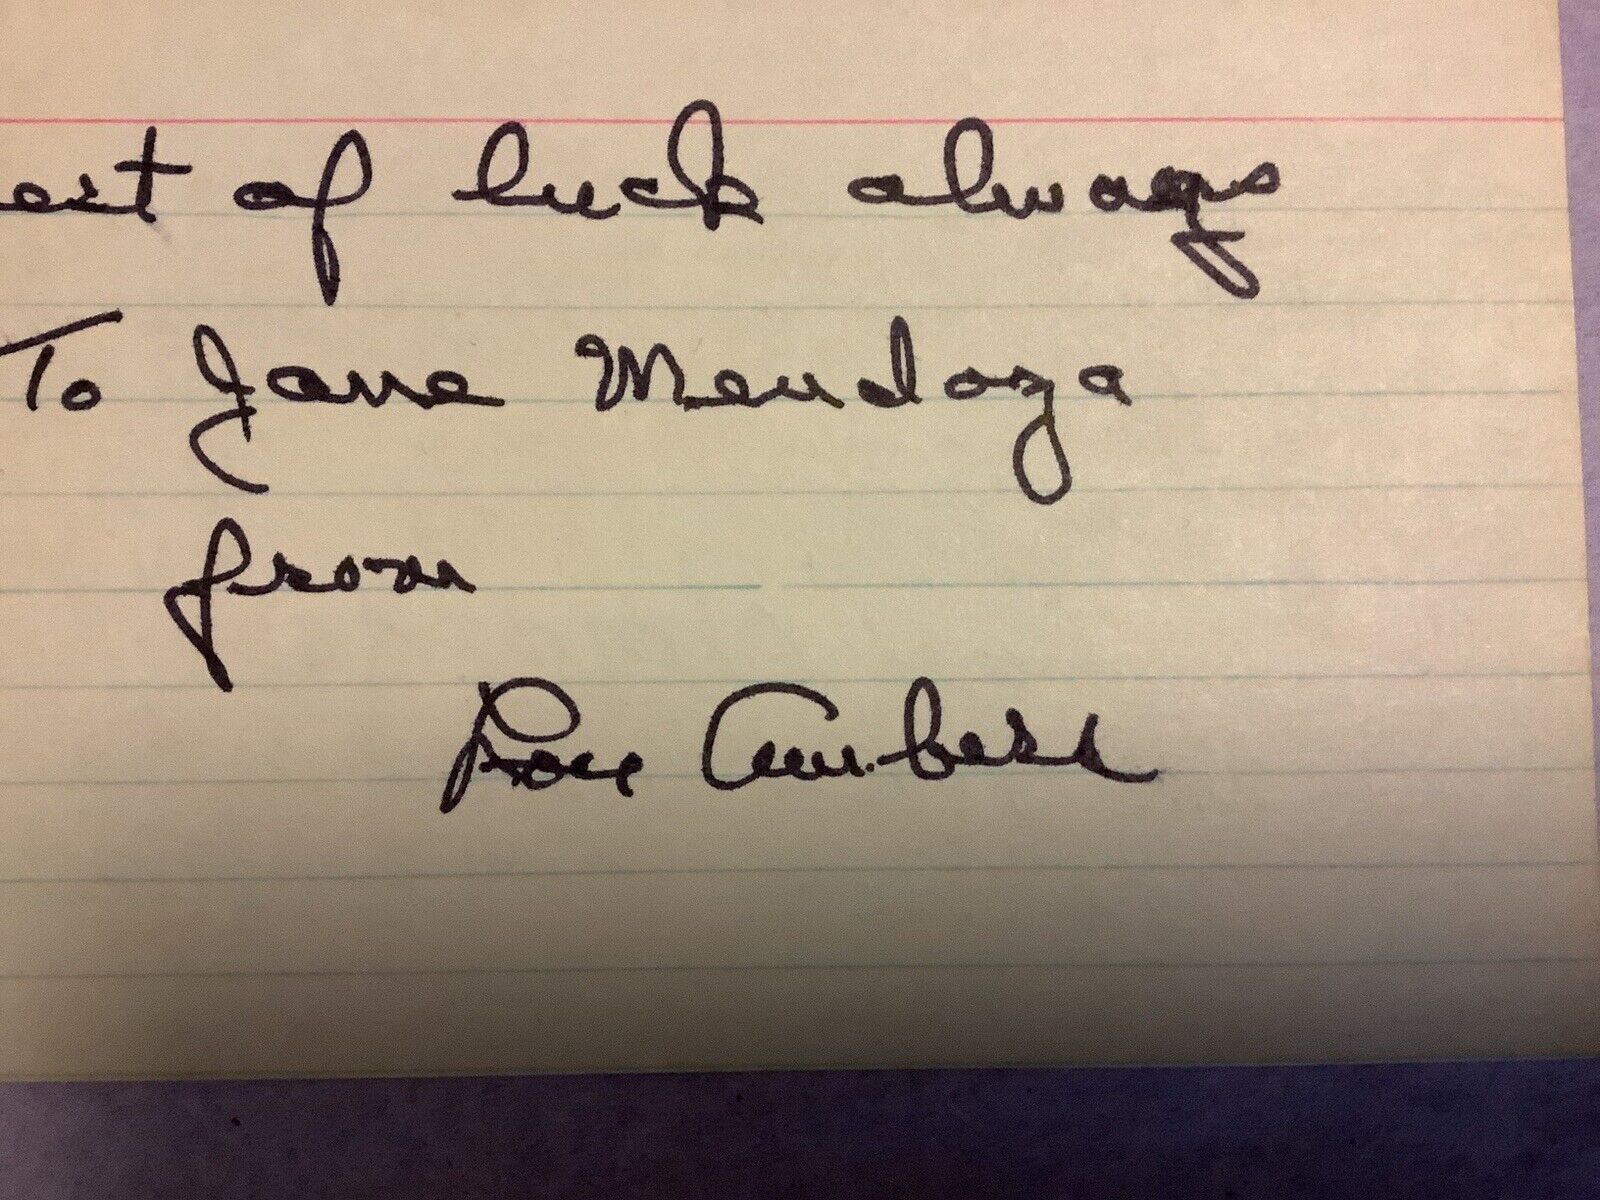 est of luck always
To Jane Mendoza
from